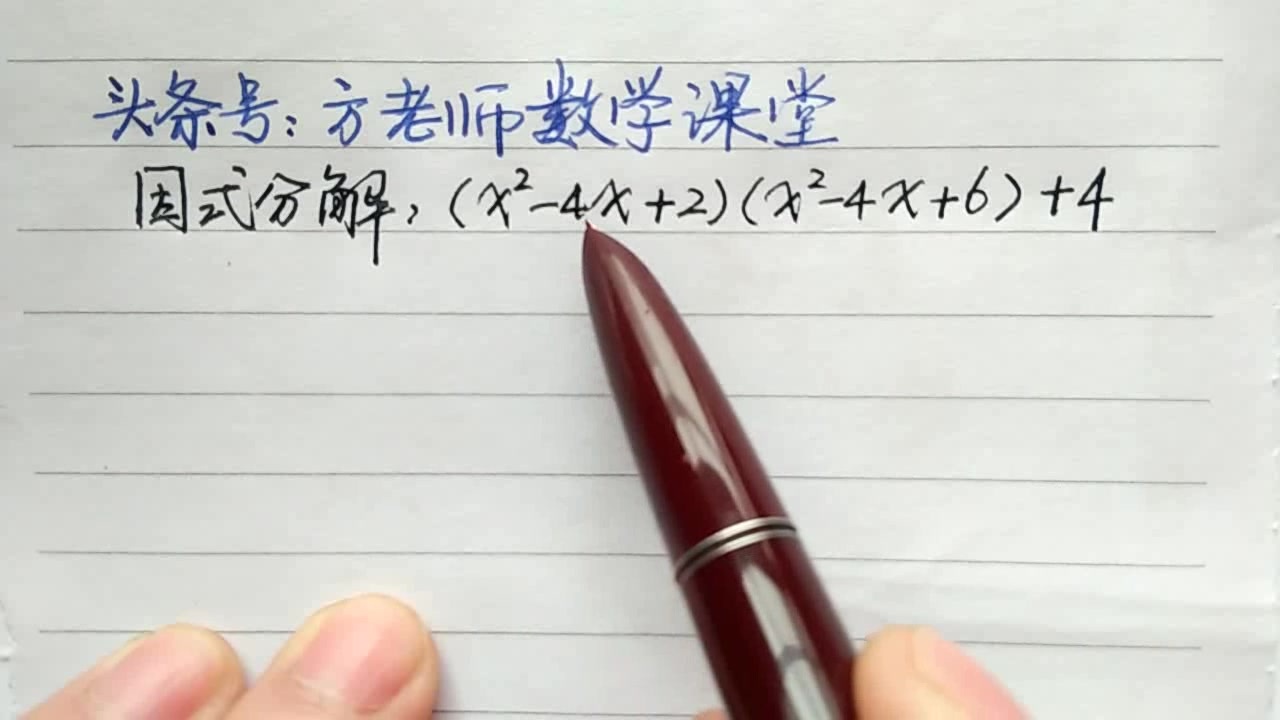 头条号：方老师数学课堂
因式分解，(x²-4x+2)(x²-4x+6)+4